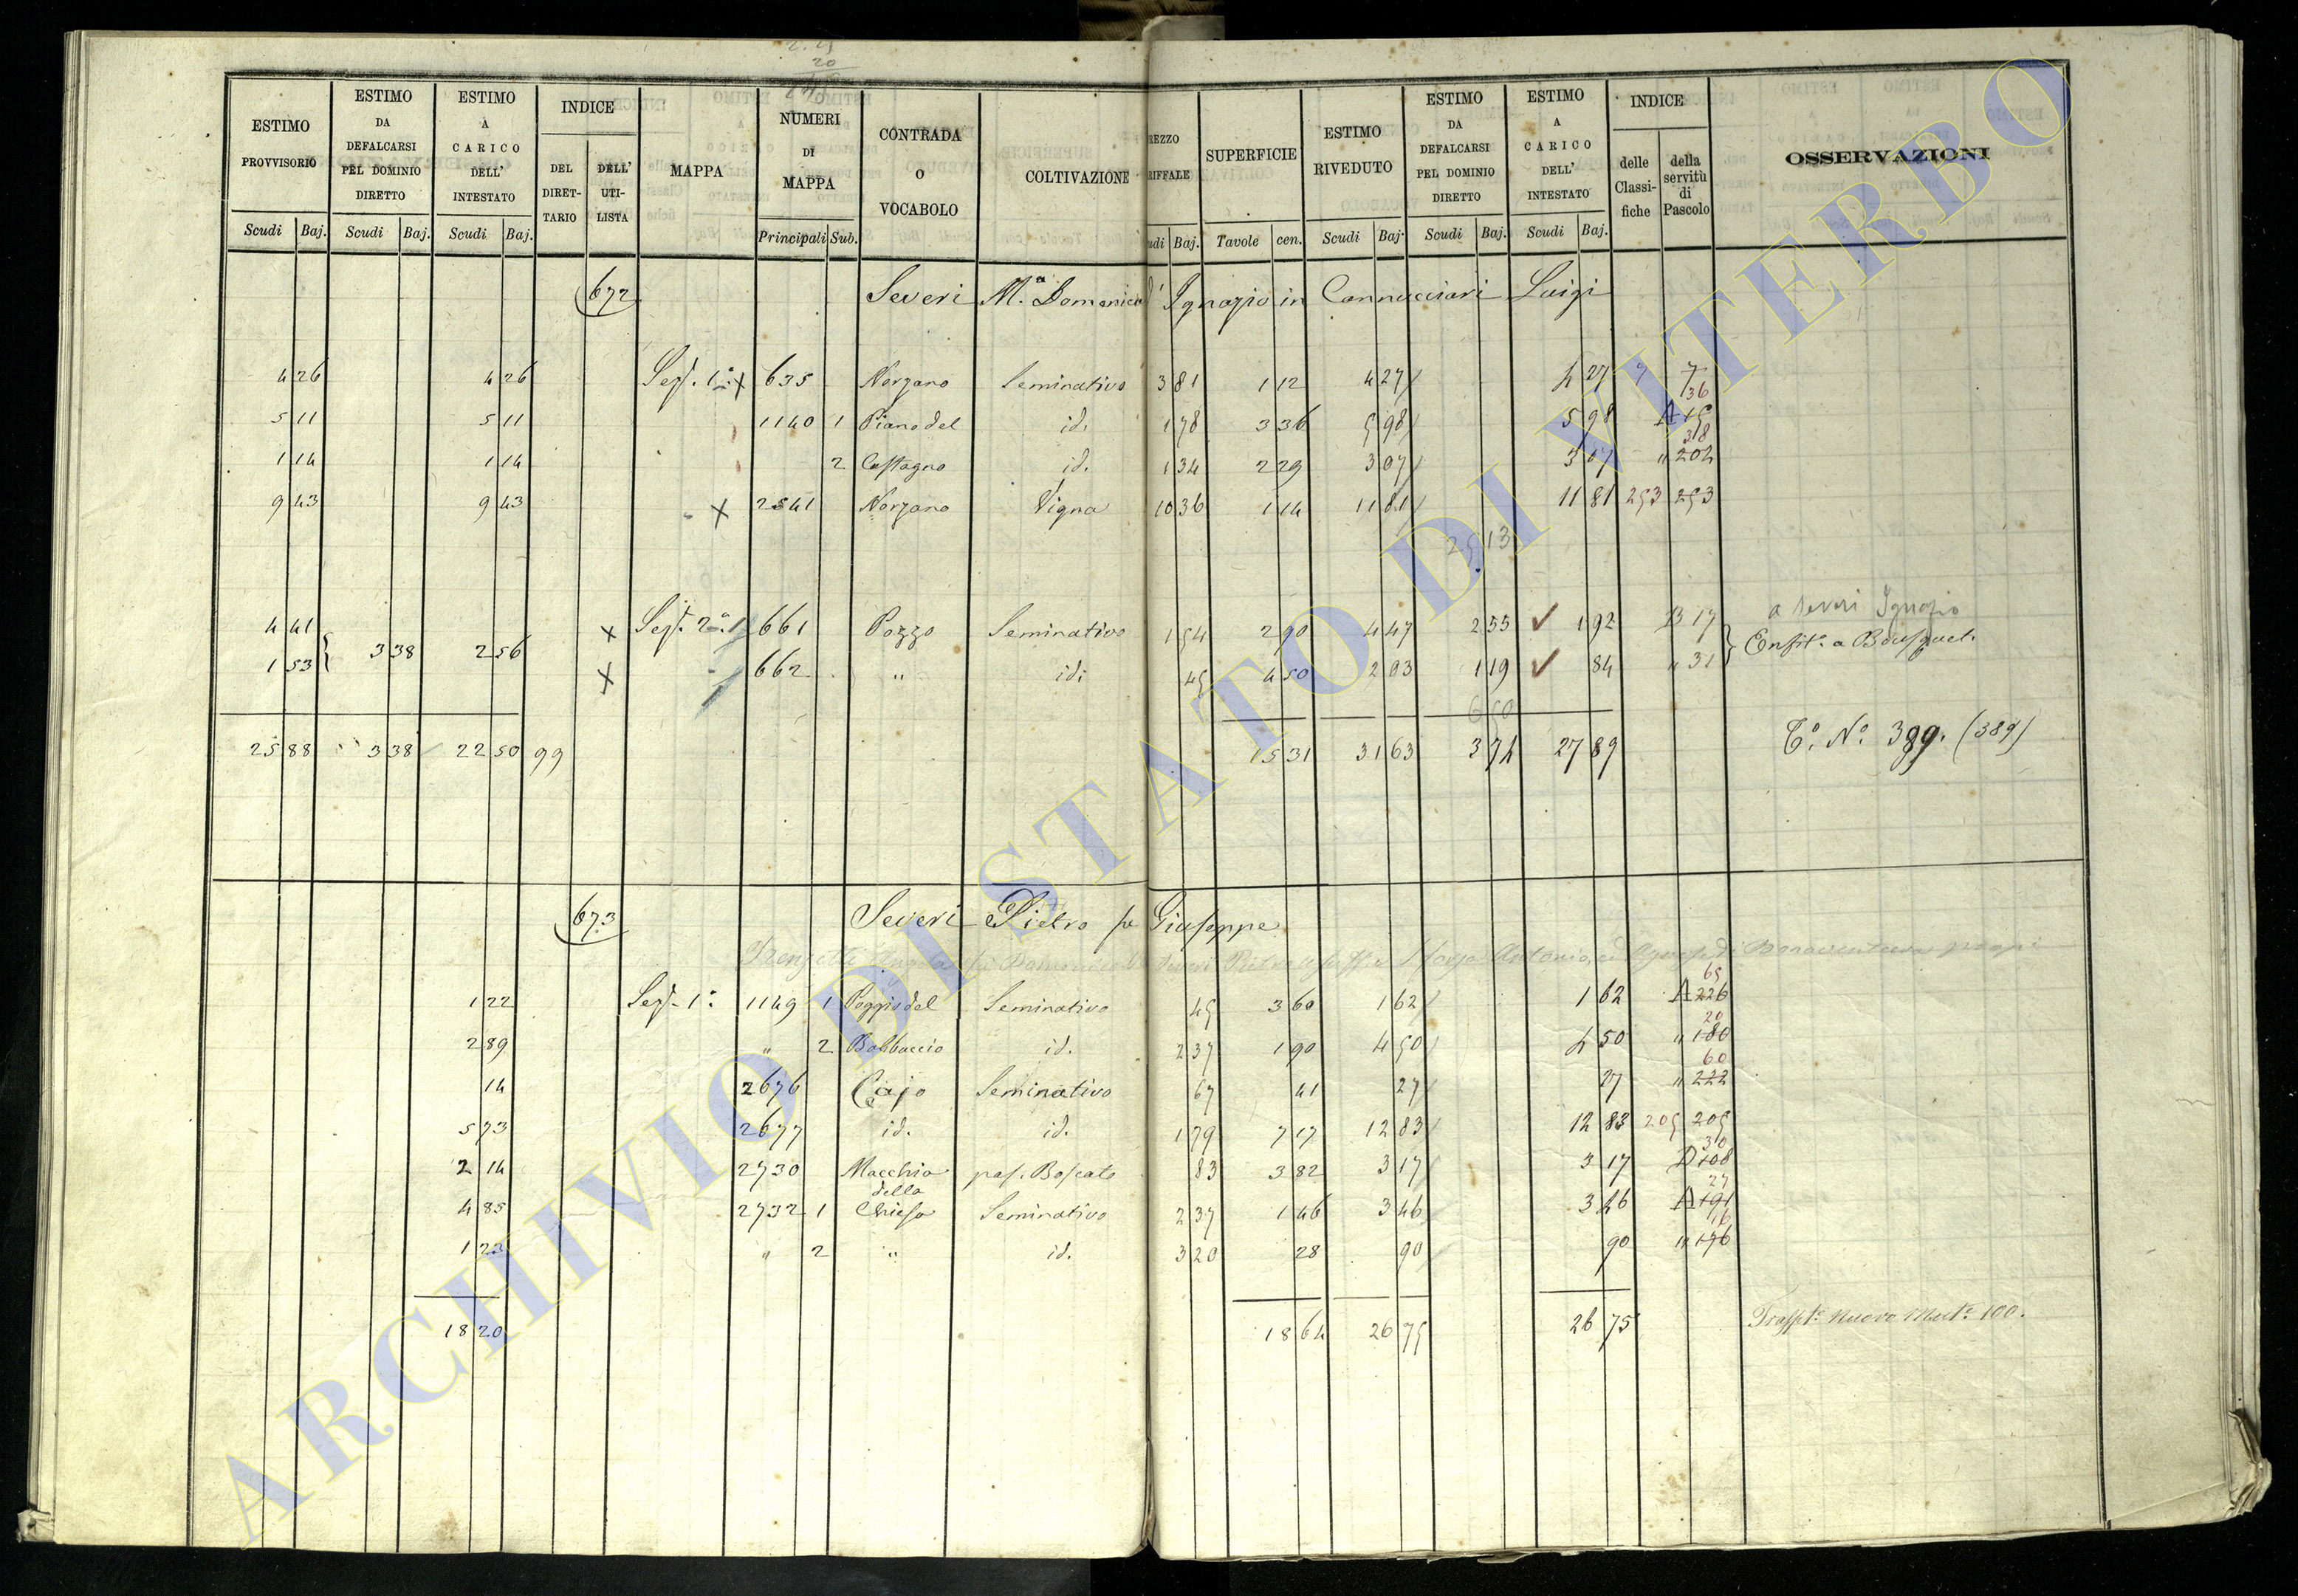 2.25
20
ESTIMO PROVVISORIO Scudi Baj.
ESTIMO DA DEFALCARSI PEL DOMINIO DIRETTO Scudi Baj.
ESTIMO A CARICO DELL' INTESTATO Scudi Baj.
INDICE DEL DIRET-TARIO DELL' UTI-LISTA
MAPPA
NUMERI DI MAPPA Principali Sub.
CONTRADA O VOCABOLO
COLTIVAZIONE
REZZO RIFFALE udi Baj.
SUPERFICIE Tavole cen.
ESTIMO RIVEDUTO Scudi Baj.
ESTIMO DA DEFALCARSI PEL DOMINIO DIRETTO Scudi Baj.
ESTIMO A CARICO DELL' INTESTATO Scudi Baj.
INDICE delle Classi-fiche della servitù di Pascolo
OSSERVAZIONI
672 Severi M.a Domenica d'Ignazio in Cannucciari Luigi
4 26 4 26 Sez. 1a x 635 Norzano Seminativo 3 81 1 12 4 27 4 27 7 7
36
5 11 5 11 1140 1 Piano del id. 1 78 3 36 5 98 5 98 A 15
318
1 14 1 14 2 Castagno id. 1 34 2 29 3 07 3 07 " 202
9 43 9 43 x 2541 Norzano Vigna 10 36 1 14 11 81 11 81 253 253
25 13
a Severi Ignazio
4 41 x Sez. 2a 661 Pozzo Seminativo 1 54 2 90 4 47 2 55 ✓ 1 92 B 17
Enfit. a Bousquet.
1 53 3 38 2 56 x 662 " id. 45 4 50 2 03 1 19 ✓ 84 " 31
6 50
25 88 3 38 22 50 99 15 31 31 63 3 74 27 89 C.o N.o 399. (389)
673 Severi Pietro fu Giuseppe
65
1 22 Sez. 1a 1149 1 Poggio del Seminativo 45 3 60 1 62 1 62 A 226
20
2 89 " 2 Balbuccio id. 2 37 1 90 4 50 4 50 " 180
60
14 2676 Cajo Seminativo 67 41 27 27 " 222
5 73 2677 id. id. 1 79 7 17 12 83 12 83 205 205
30
2 14 2730 Macchia pas. Boscato 83 3 82 3 17 3 17 D 108
della 27
4 85 2732 1 Chiesa Seminativo 2 37 1 46 3 46 3 46 A 191
16
1 23 " 2 " id. 3 20 28 90 90 " 176
18 20 18 64 26 75 26 75 Trasp.to nuovo Mat.e 100.
ARCHIVIO DI STATO DI VITERBO